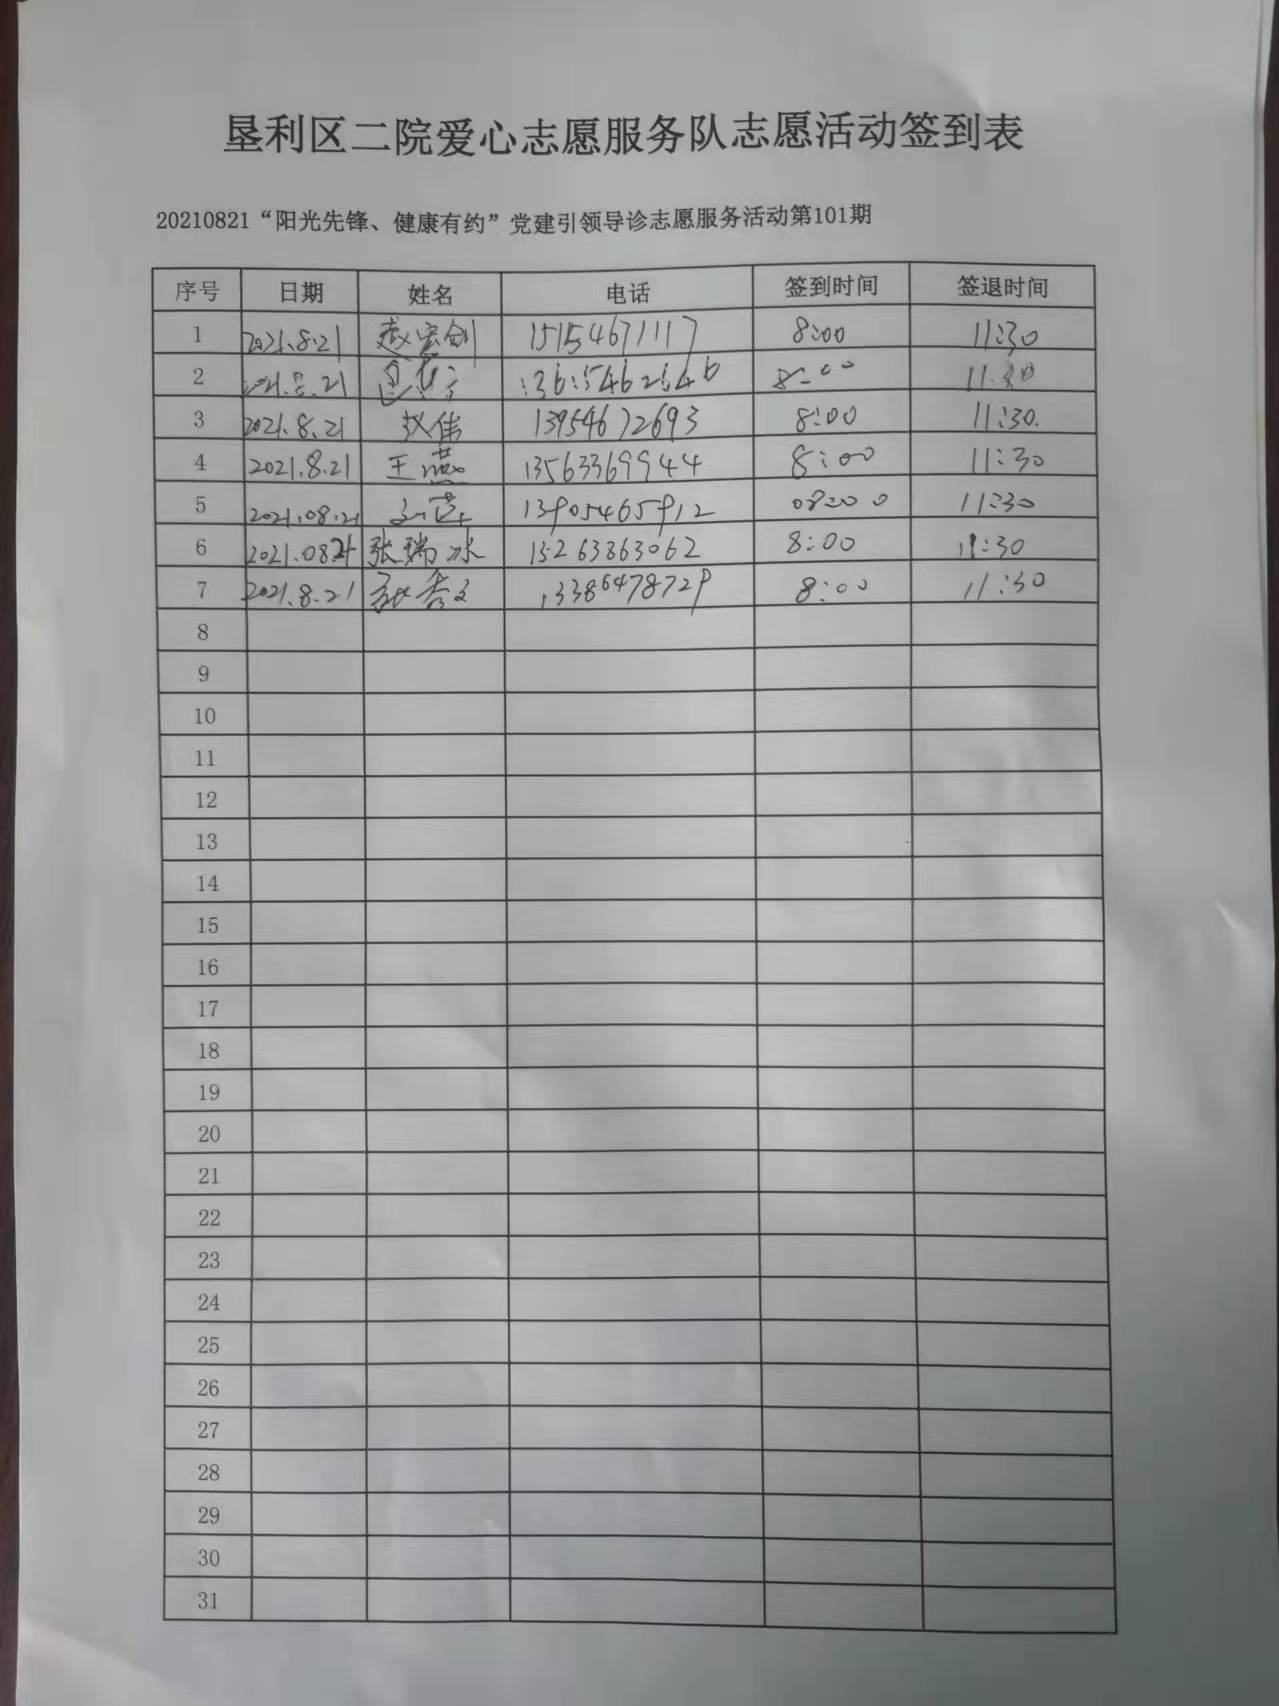 垦利区二院爱心志愿服务队志愿活动签到表
20210821“阳光先锋、健康有约”党建引领导诊志愿服务活动第101期
序号 日期 姓名 电话 签到时间 签退时间
1 2021.8.21 赵宏剑 15154671117 8:00 11:30
2 2021.8.21 8:00 11:30
3 2021.8.21 赵伟 13954672693 8:00 11:30.
4 2021.8.21 王燕 13563369944 8:00 11:30
5 2021.08.21 13905465912 08:00 11:30
6 2021.0821 张瑞冰 15263863062 8:00 11:30
7 2021.8.21 13386478729 8:00 11:30
8
9
10
11
12
13
14
15
16
17
18
19
20
21
22
23
24
25
26
27
28
29
30
31